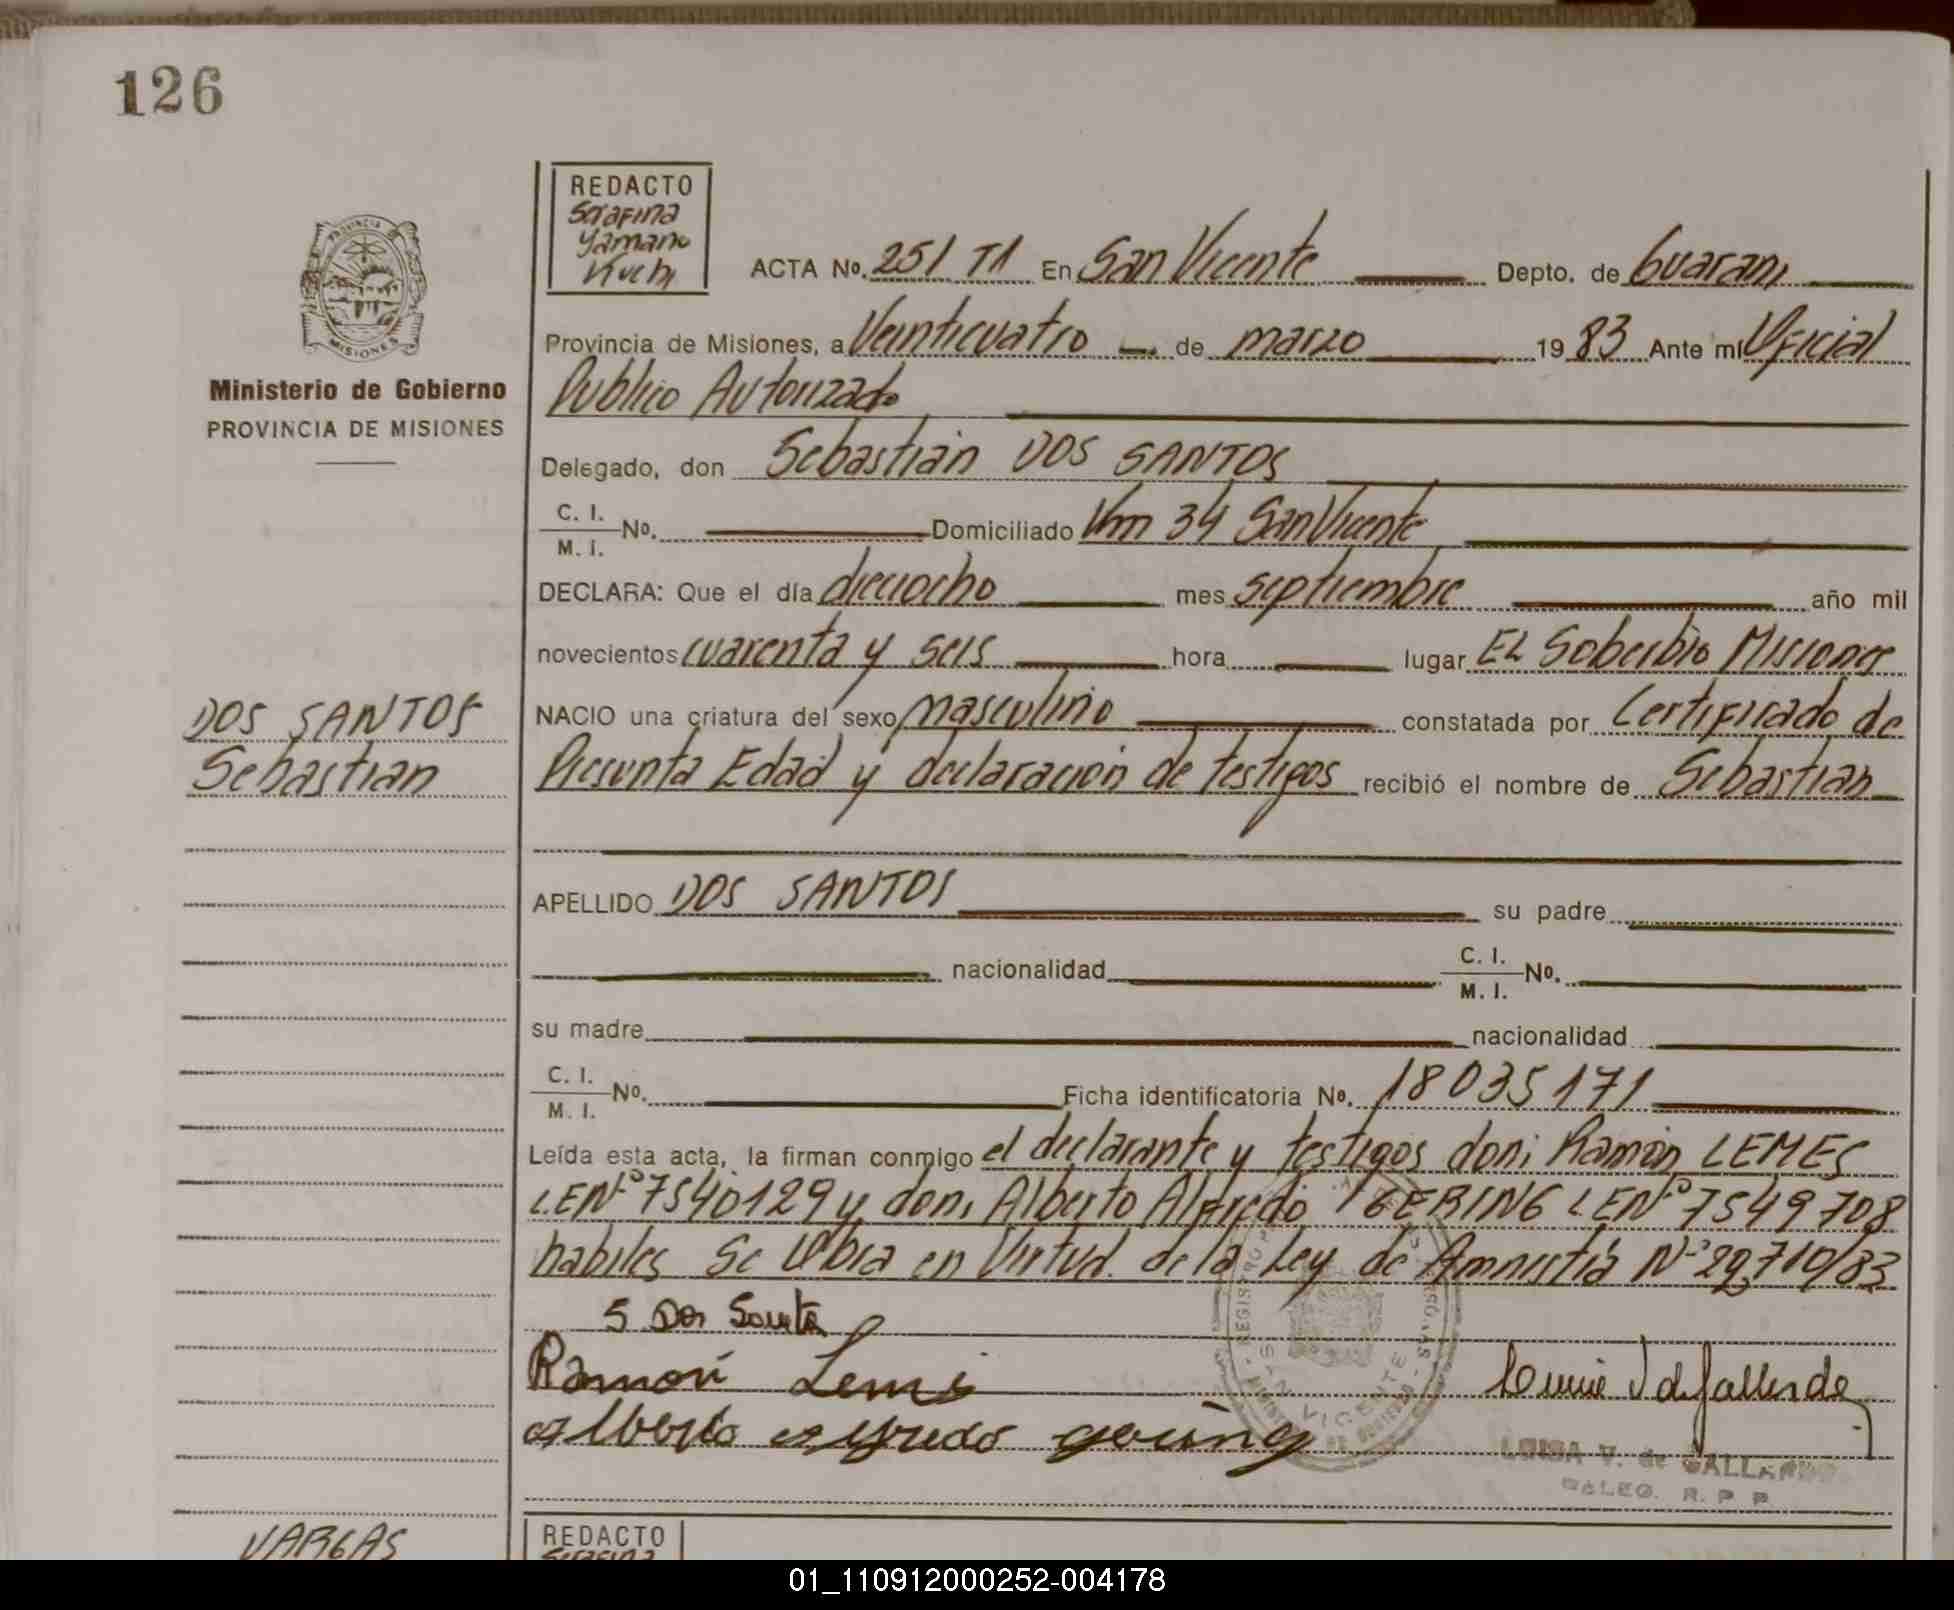 126
REDACTO
Serafina
Yamano
Kuchi
ACTA No. 251 T1 En San Vicente Depto. de Guarani
Provincia de Misiones, a Veinticuatro de marzo 1983 Ante mí Oficial
Publico Autorizado
PROVINCIA DE
MISIONES
Ministerio de Gobierno
PROVINCIA DE MISIONES
Delegado, don Sebastián DOS SANTOS
C. I.
M. I. No. Domiciliado Km 34 San Vicente
DECLARA: Que el día dieciocho mes septiembre año mil
novecientos cuarenta y seis hora lugar EL Soberbio Misiones
DOS SANTOS
Sebastian
NACIO una criatura del sexo masculino constatada por Certificado de
Presunta Edad y declaración de testigos recibió el nombre de Sebastian
APELLIDO DOS SANTOS su padre
nacionalidad C. I.
M. I. No.
su madre nacionalidad
C. I.
M. I. No. Ficha identificatoria No. 18035171
Leída esta acta, la firman conmigo el declarante y testigos don: Ramón LEMES
LE Nº 7540129 y don: Alberto Alfredo GERING LE Nº 7549708
habiles Se labra en Virtud de la Ley de Amnistía Nº 22,710/83
S Dos Santo
Ramon Lemes
Alberto Alfredo gering
SAN VICENTE
LUISA V. de GALLARDO
DALEG. R. P. P.
VARGAS
REDACTO
Serafina
01_110912000252-004178